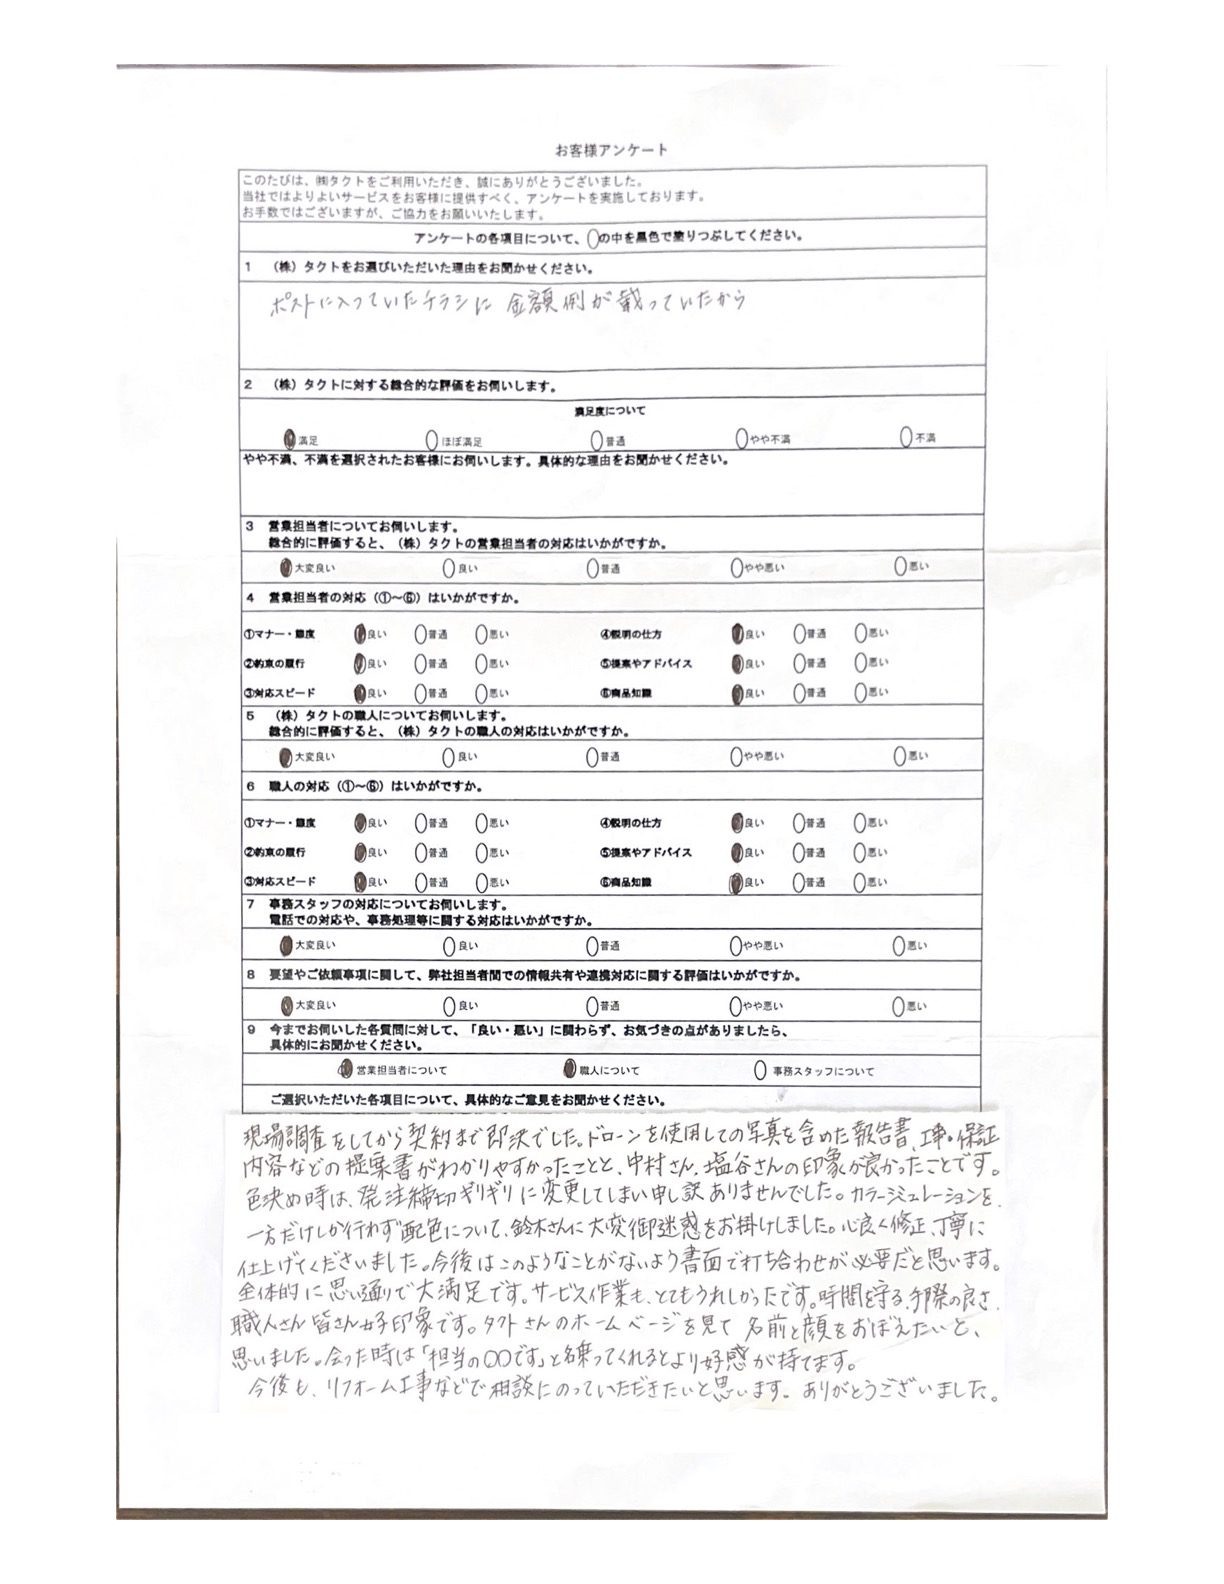 お客様アンケート
このたびは、㈱タクトをご利用いただき、誠にありがとうございました。
当社ではよりよいサービスをお客様に提供すべく、アンケートを実施しております。
お手数ではございますが、ご協力をお願いいたします。
アンケートの各項目について、○の中を黒色で塗りつぶしてください。
1 （株）タクトをお選びいただいた理由をお聞かせください。
ポストに入っていたチラシに 金額例が載っていたから
2 （株）タクトに対する総合的な評価をお伺いします。
満足度について
満足 ○ほぼ満足 ○普通 ○やや不満 ○不満
やや不満、不満を選択されたお客様にお伺いします。具体的な理由をお聞かせください。
3 営業担当者についてお伺いします。
総合的に評価すると、（株）タクトの営業担当者の対応はいかがですか。
●大変良い ○良い ○普通 ○やや悪い ○悪い
4 営業担当者の対応（①～⑥）はいかがですか。
①マナー・態度 ●良い ○普通 ○悪い ④説明の仕方 ●良い ○普通 ○悪い
②約束の履行 ●良い ○普通 ○悪い ⑤提案やアドバイス ●良い ○普通 ○悪い
③対応スピード ●良い ○普通 ○悪い ⑥商品知識 ●良い ○普通 ○悪い
5 （株）タクトの職人についてお伺いします。
総合的に評価すると、（株）タクトの職人の対応はいかがですか。
●大変良い ○良い ○普通 ○やや悪い ○悪い
6 職人の対応（①～⑥）はいかがですか。
①マナー・態度 ●良い ○普通 ○悪い ④説明の仕方 ●良い ○普通 ○悪い
②約束の履行 ●良い ○普通 ○悪い ⑤提案やアドバイス ●良い ○普通 ○悪い
③対応スピード ●良い ○普通 ○悪い ⑥商品知識 ●良い ○普通 ○悪い
7 事務スタッフの対応についてお伺いします。
電話での対応や、事務処理等に関する対応はいかがですか。
●大変良い ○良い ○普通 ○やや悪い ○悪い
8 要望やご依頼事項に関して、弊社担当者間での情報共有や連携対応に関する評価はいかがですか。
●大変良い ○良い ○普通 ○やや悪い ○悪い
9 今までお伺いした各質問に対して、「良い・悪い」に関わらず、お気づきの点がありましたら、
具体的にお聞かせください。
●営業担当者について ●職人について ○事務スタッフについて
ご選択いただいた各項目について、具体的なご意見をお聞かせください。
現場調査をしてから契約まで即決でした。ドローンを使用しての写真を含めた報告書、工事・保証
内容などの提案書がわかりやすかったことと、中村さん、塩谷さんの印象が良かったことです。
色決め時は、発注締切ギリギリに変更してしまい申し訳ありませんでした。カラージュレーションを、
一方だけしか行わず配色について、鈴木さんに大変御迷惑をお掛けしました。心良く修正、丁寧に
仕上げてくださいました。今後はこのようなことがないよう書面で打ち合わせが必要だと思います。
全体的に思い通りで大満足です。サービス作業も、とてもうれしかったです。時間を守る、手際の良さ、
職人さん皆さん好印象です。タクトさんのホームページを見て 名前と顔をおぼえたいと、
思いました。会った時は「担当の○○です」と名乗ってくれるとより好感が持てます。
今後も、リフォーム工事などで相談にのっていただきたいと思います。ありがとうございました。